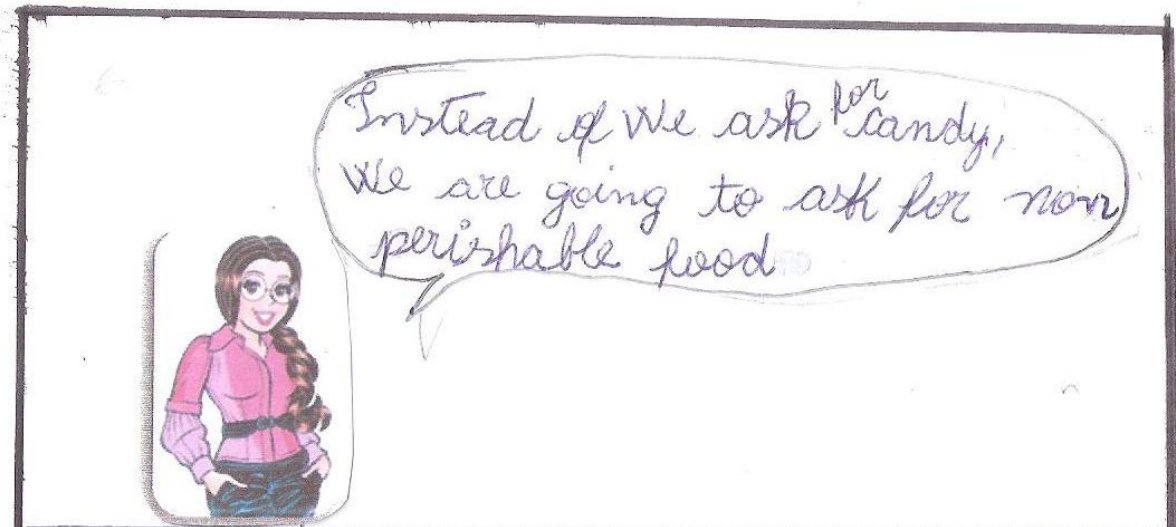 Instead of We ask for candy,
We are going to ask for non
perishable food